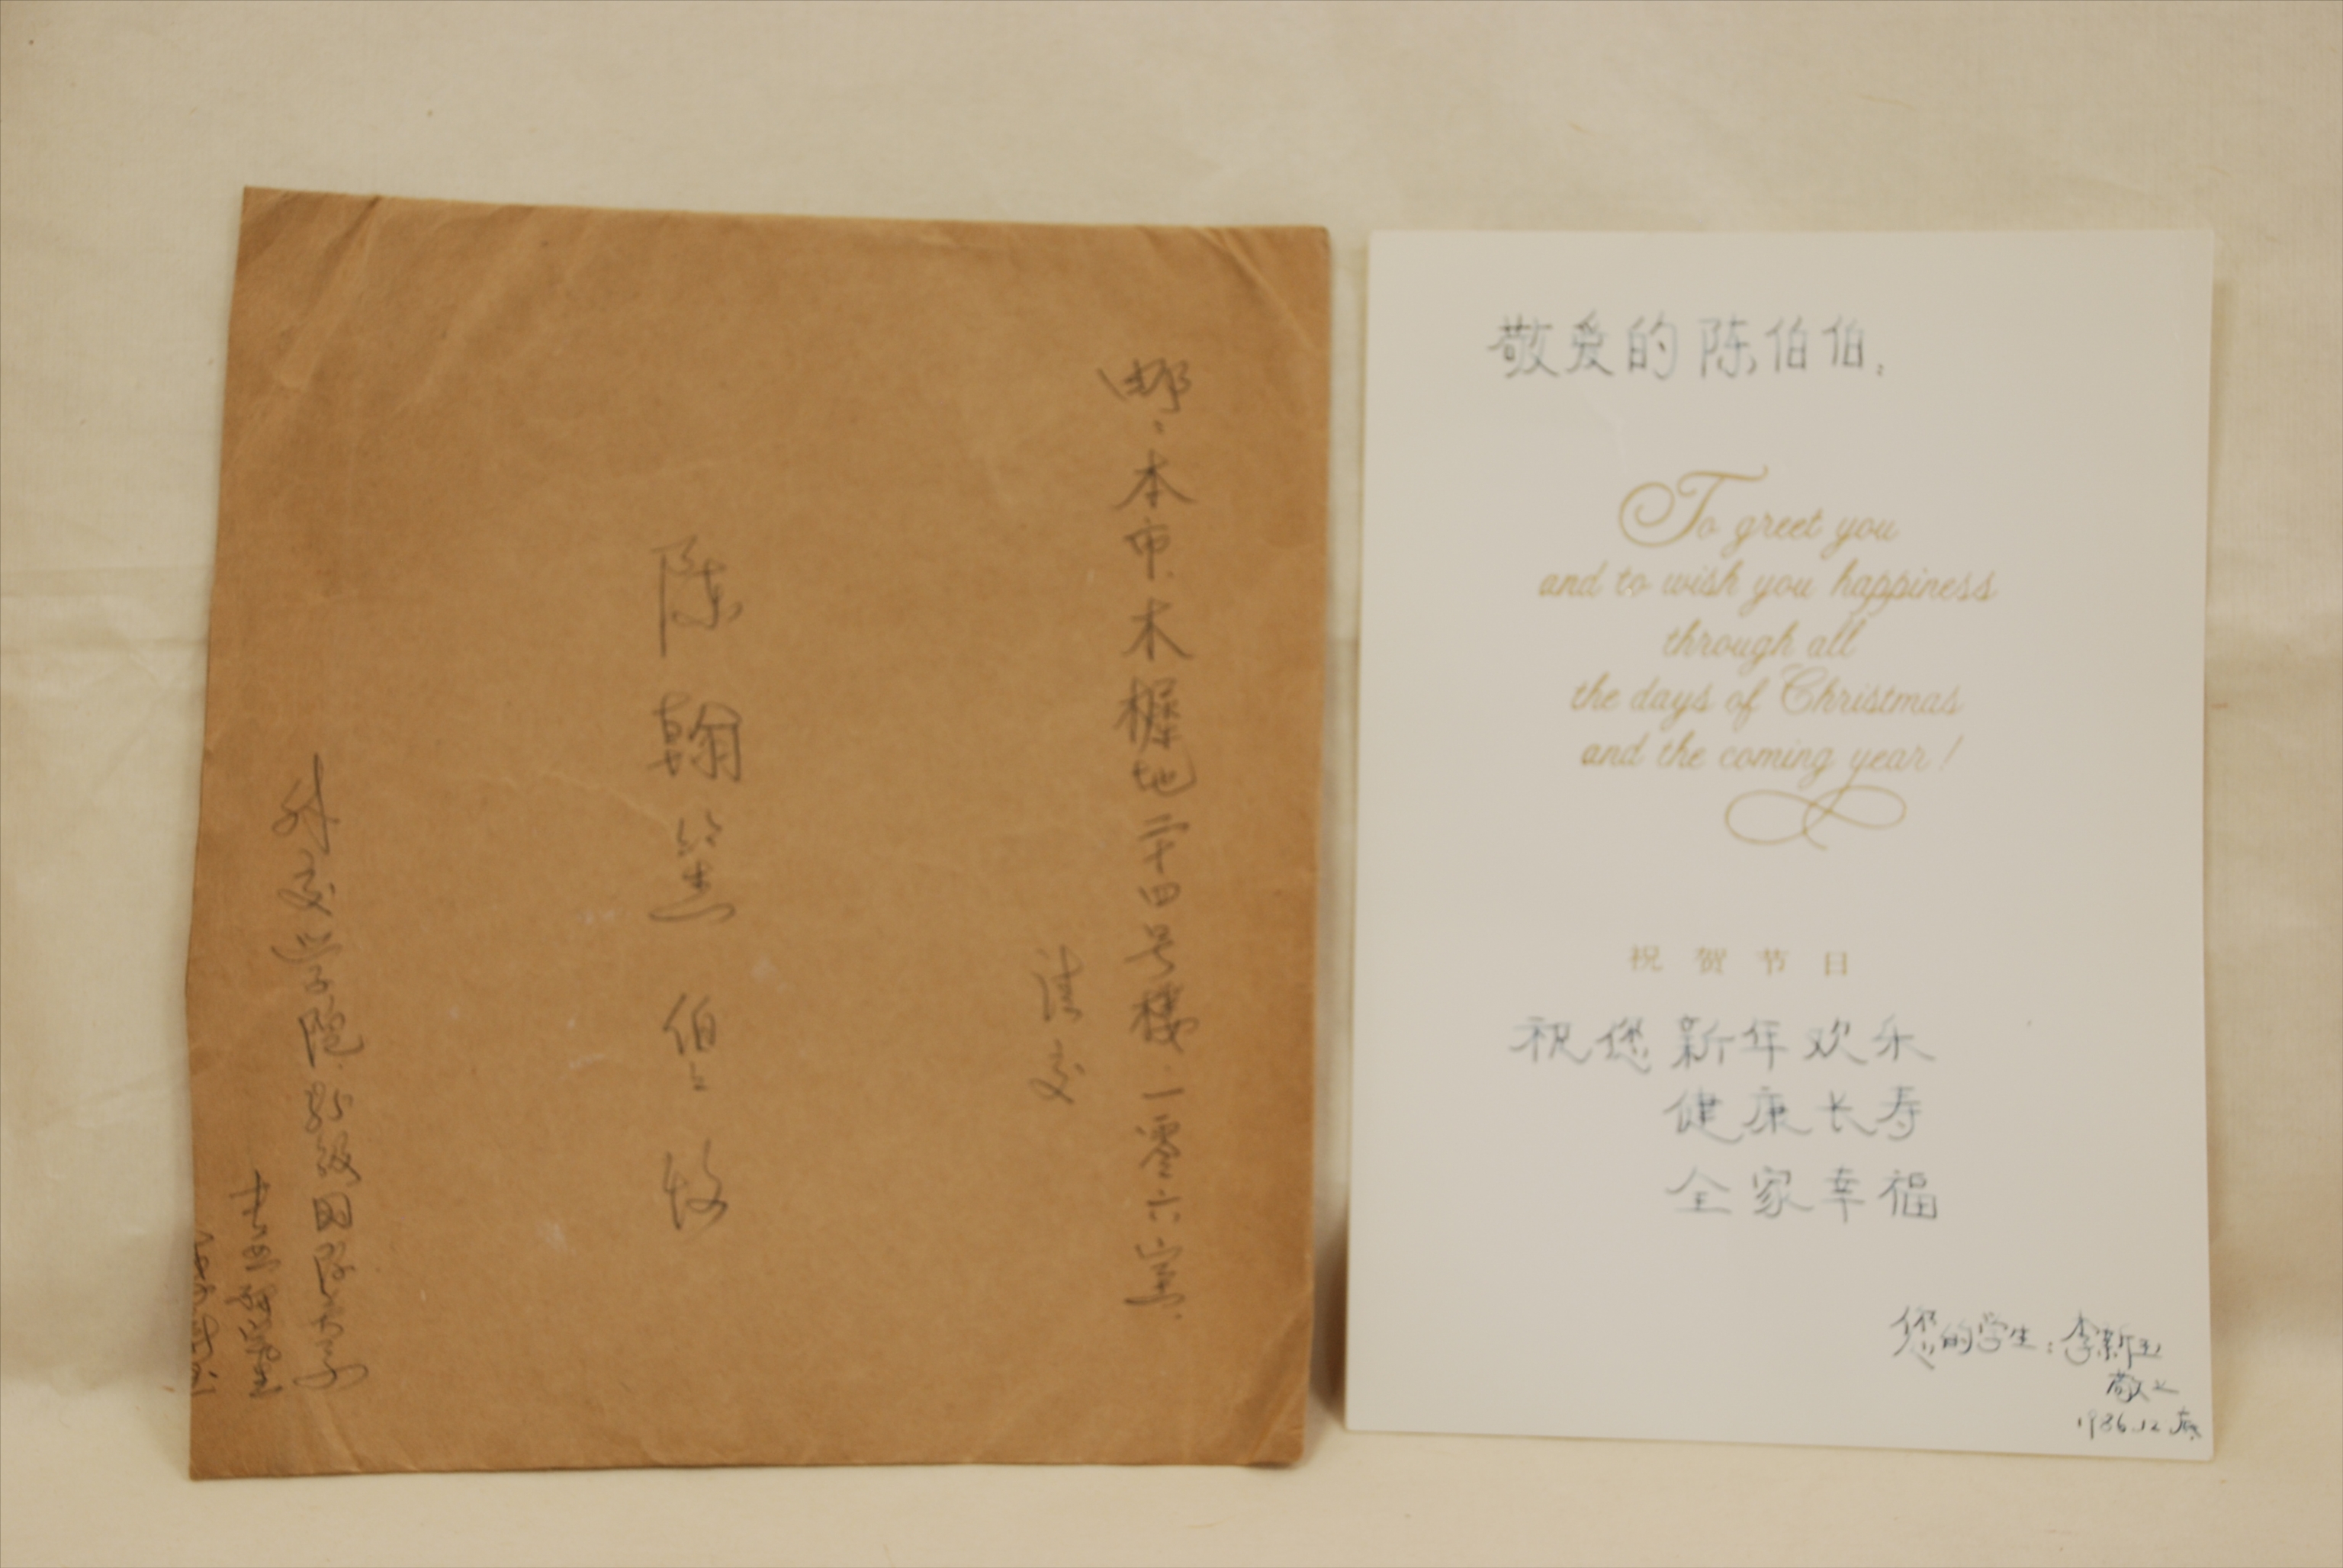 邮：本市.木樨地二十四号楼.一零六室.
请交
陈翰笙伯伯收
外交学院
敬爱的陈伯伯：
To greet you
and to wish you happiness
through all
the days of Christmas
and the coming year!
祝贺节日
祝您新年欢乐
健康长寿
全家幸福
您的学生：李新玉
敬上
1986.12.